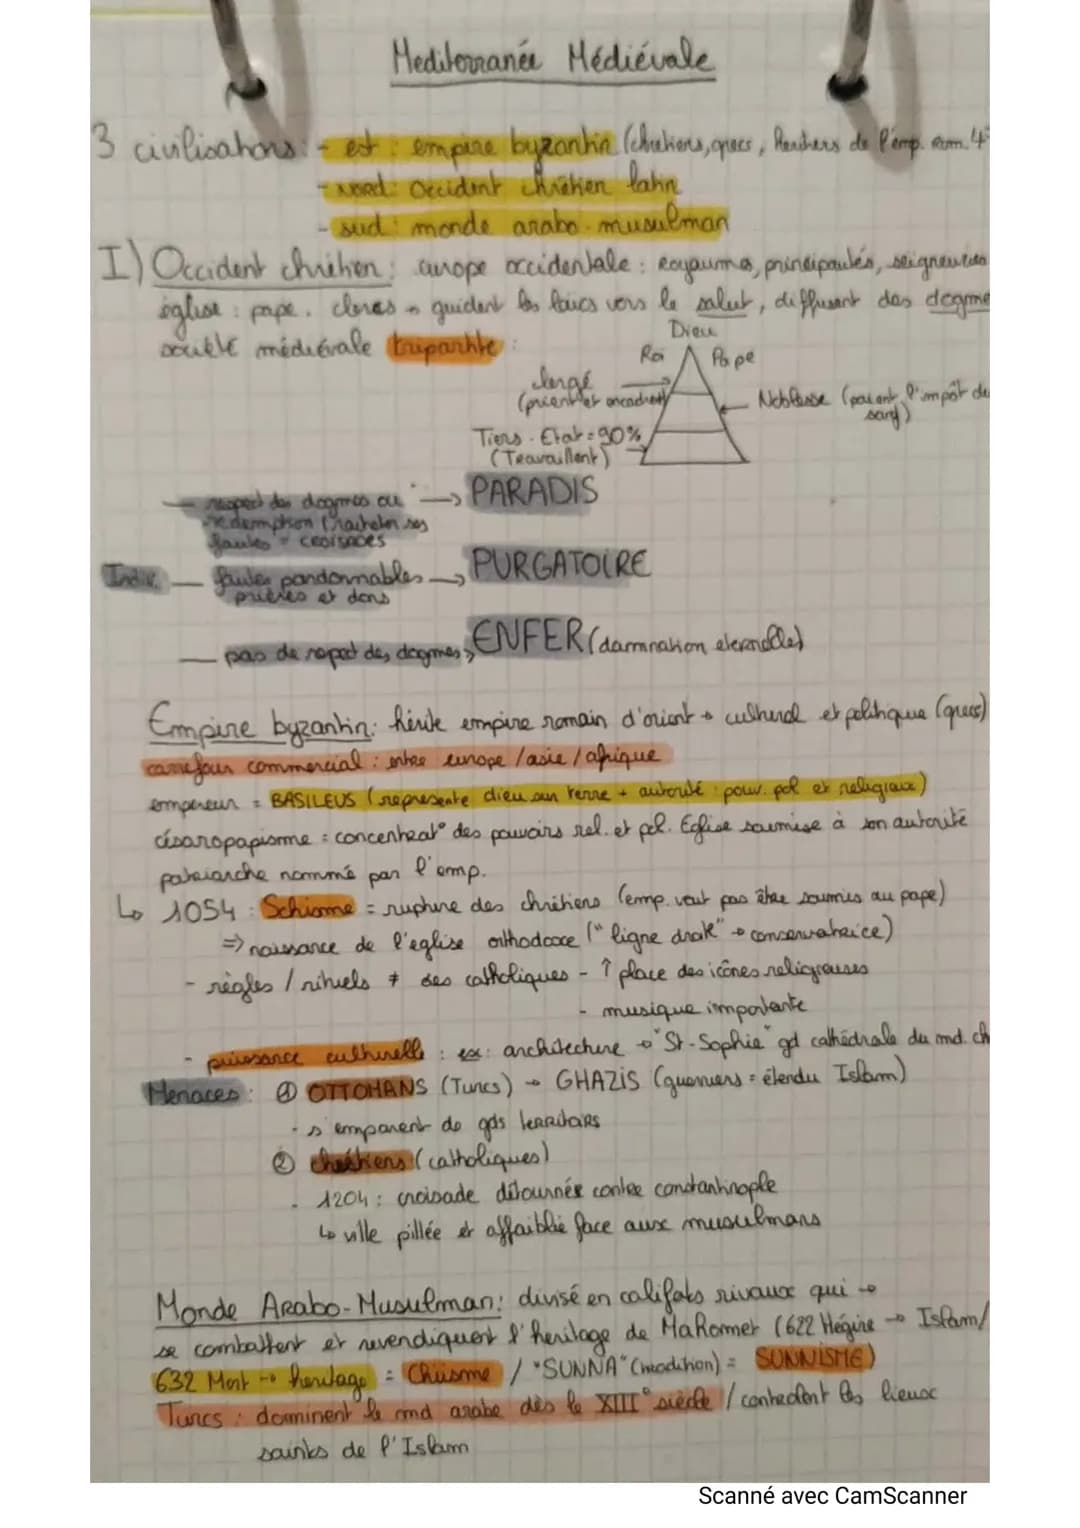 Mediterranée Médiévale
3 civilisations: - est : empire byzantin (chretiens, grecs, heritiers de l'emp. rom. 4
- nord: Occident chrétien latin
- sud : monde arabo-musulman
I) Occident chrétien : europe occidentale : royaumes, principautés, seigneuries
église : pape, clercs → guident les laics vers le salut, diffusent des dogme
société médiévale tripartite :
Dieu
Roi Pape
clergé
(prient et encadrent)
Noblesse (paient l'impôt du
sang)
Tiers-Etat = 90%
(Travaillent)
— respect des dogmes ou → PARADIS
redemption (racheter ses
fautes = CROISADES
Indiv. — fautes pardonnables → PURGATOIRE
prières et dons
— pas de respect des dogmes → ENFER (damnation eternelle)
Empire byzantin: hérite empire romain d'orient → culturel et politique (grecs)
carrefour commercial : entre europe / asie / afrique
empereur = BASILEUS (represente dieu sur terre + autorité : pouv. pol et religieux)
césaropapisme = concentrat° des pouvoirs rel. et pol. Eglise soumise à son autorité
patriarche nommé par l'emp.
↳ 1054 : Schisme = rupture des chrétiens (emp. veut pas être soumis au pape)
⇒ naissance de l'eglise orthodoxe ("ligne droite" → conservatrice)
- règles / rituels ≠ des catholiques - ↑ place des icônes religieuses
- musique importante
- puissance culturelle : ex: architecture → "St-Sophie" gd cathédrale du md. ch
Menaces : ① OTTOMANS (Turcs) → GHAZIS (guerriers = étendu Islam)
- s'emparent de gds territoires
② chrétiens (catholiques)
- 1204 : croisade détournée contre constantinople
↳ ville pillée et affaiblie face aux musulmans
Monde Arabo-Musulman: divisé en califats rivaux qui →
se combattent et revendiquent l'heritage de Mahomet (622 Hégire → Islam /
632 Mort → heritage = Chiisme / "SUNNA" (tradition) = SUNNISME)
Turcs : dominent le md arabe dès le XIII° siècle / controlent les lieux
saints de l'Islam
Scanné avec CamScanner